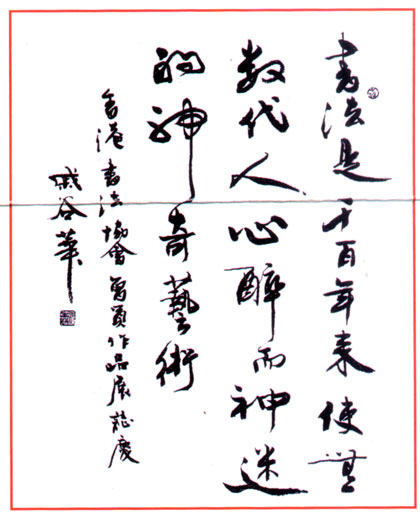 書法是千百年來使無
數代人心醉而神迷
的神奇藝術
香港書法協會會員作品展誌慶
戚谷華